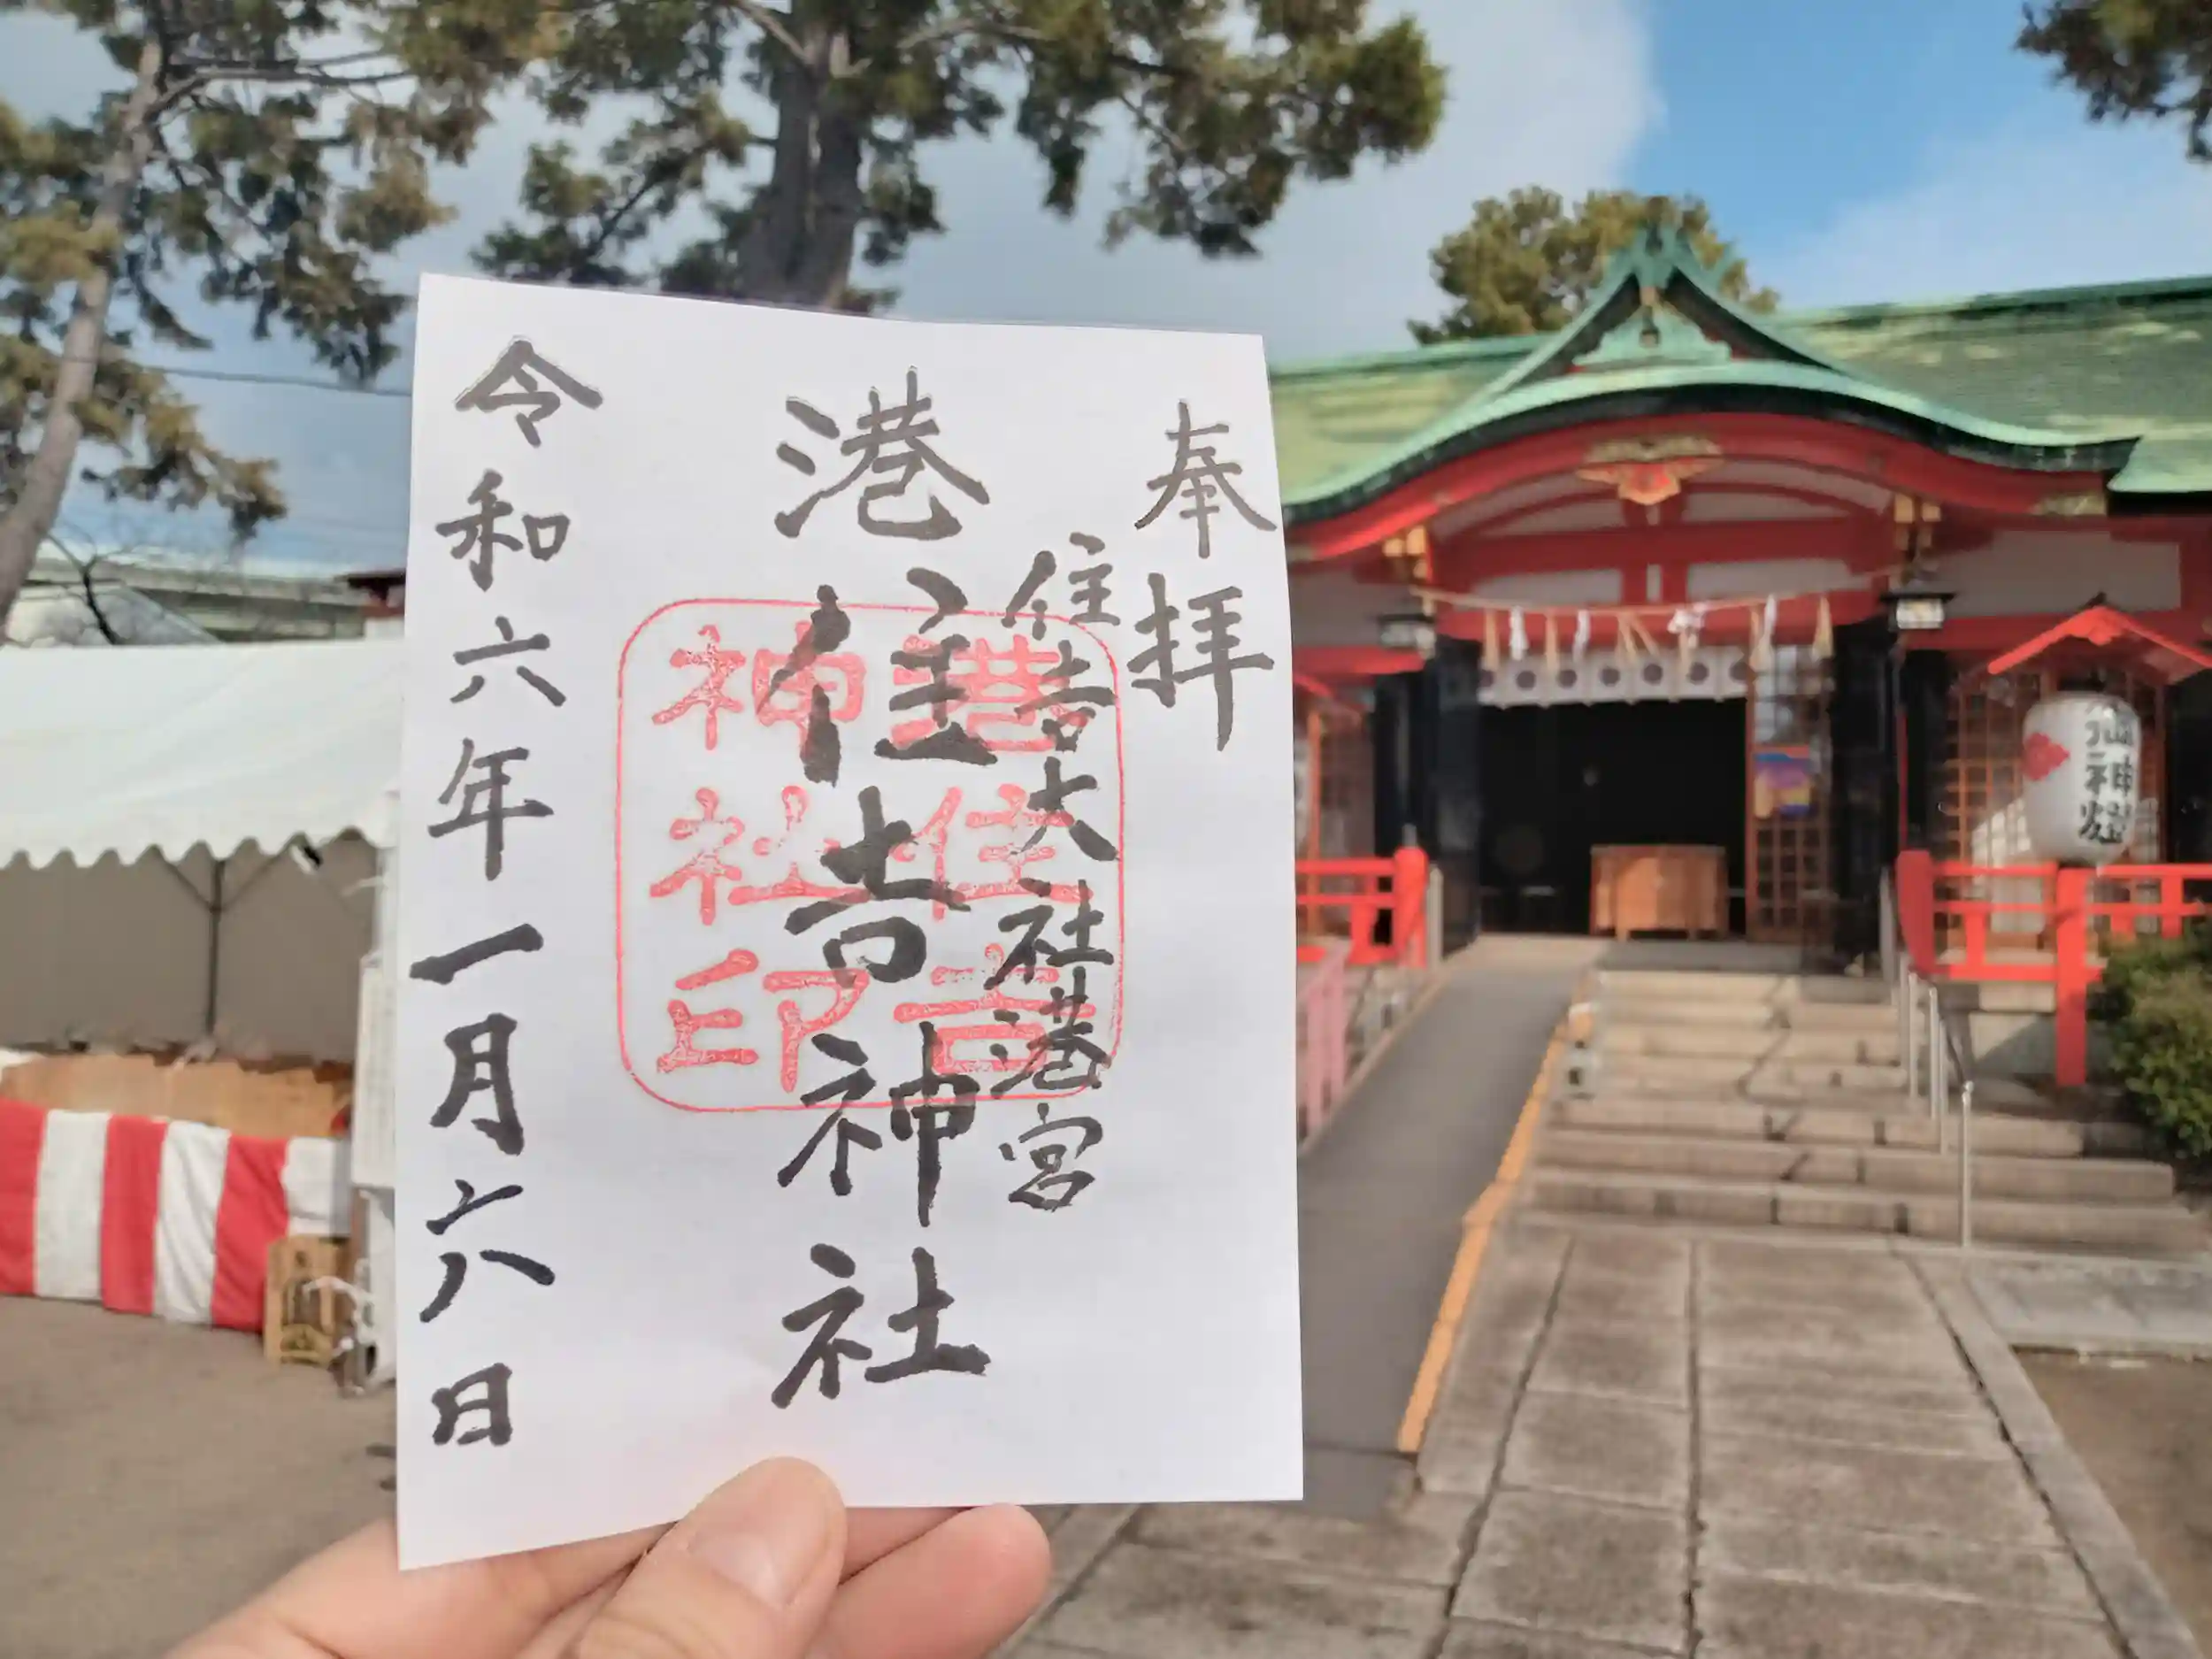 奉拝
住吉大社港宮
港住吉神社
港住吉
神社印
令和六年一月六日